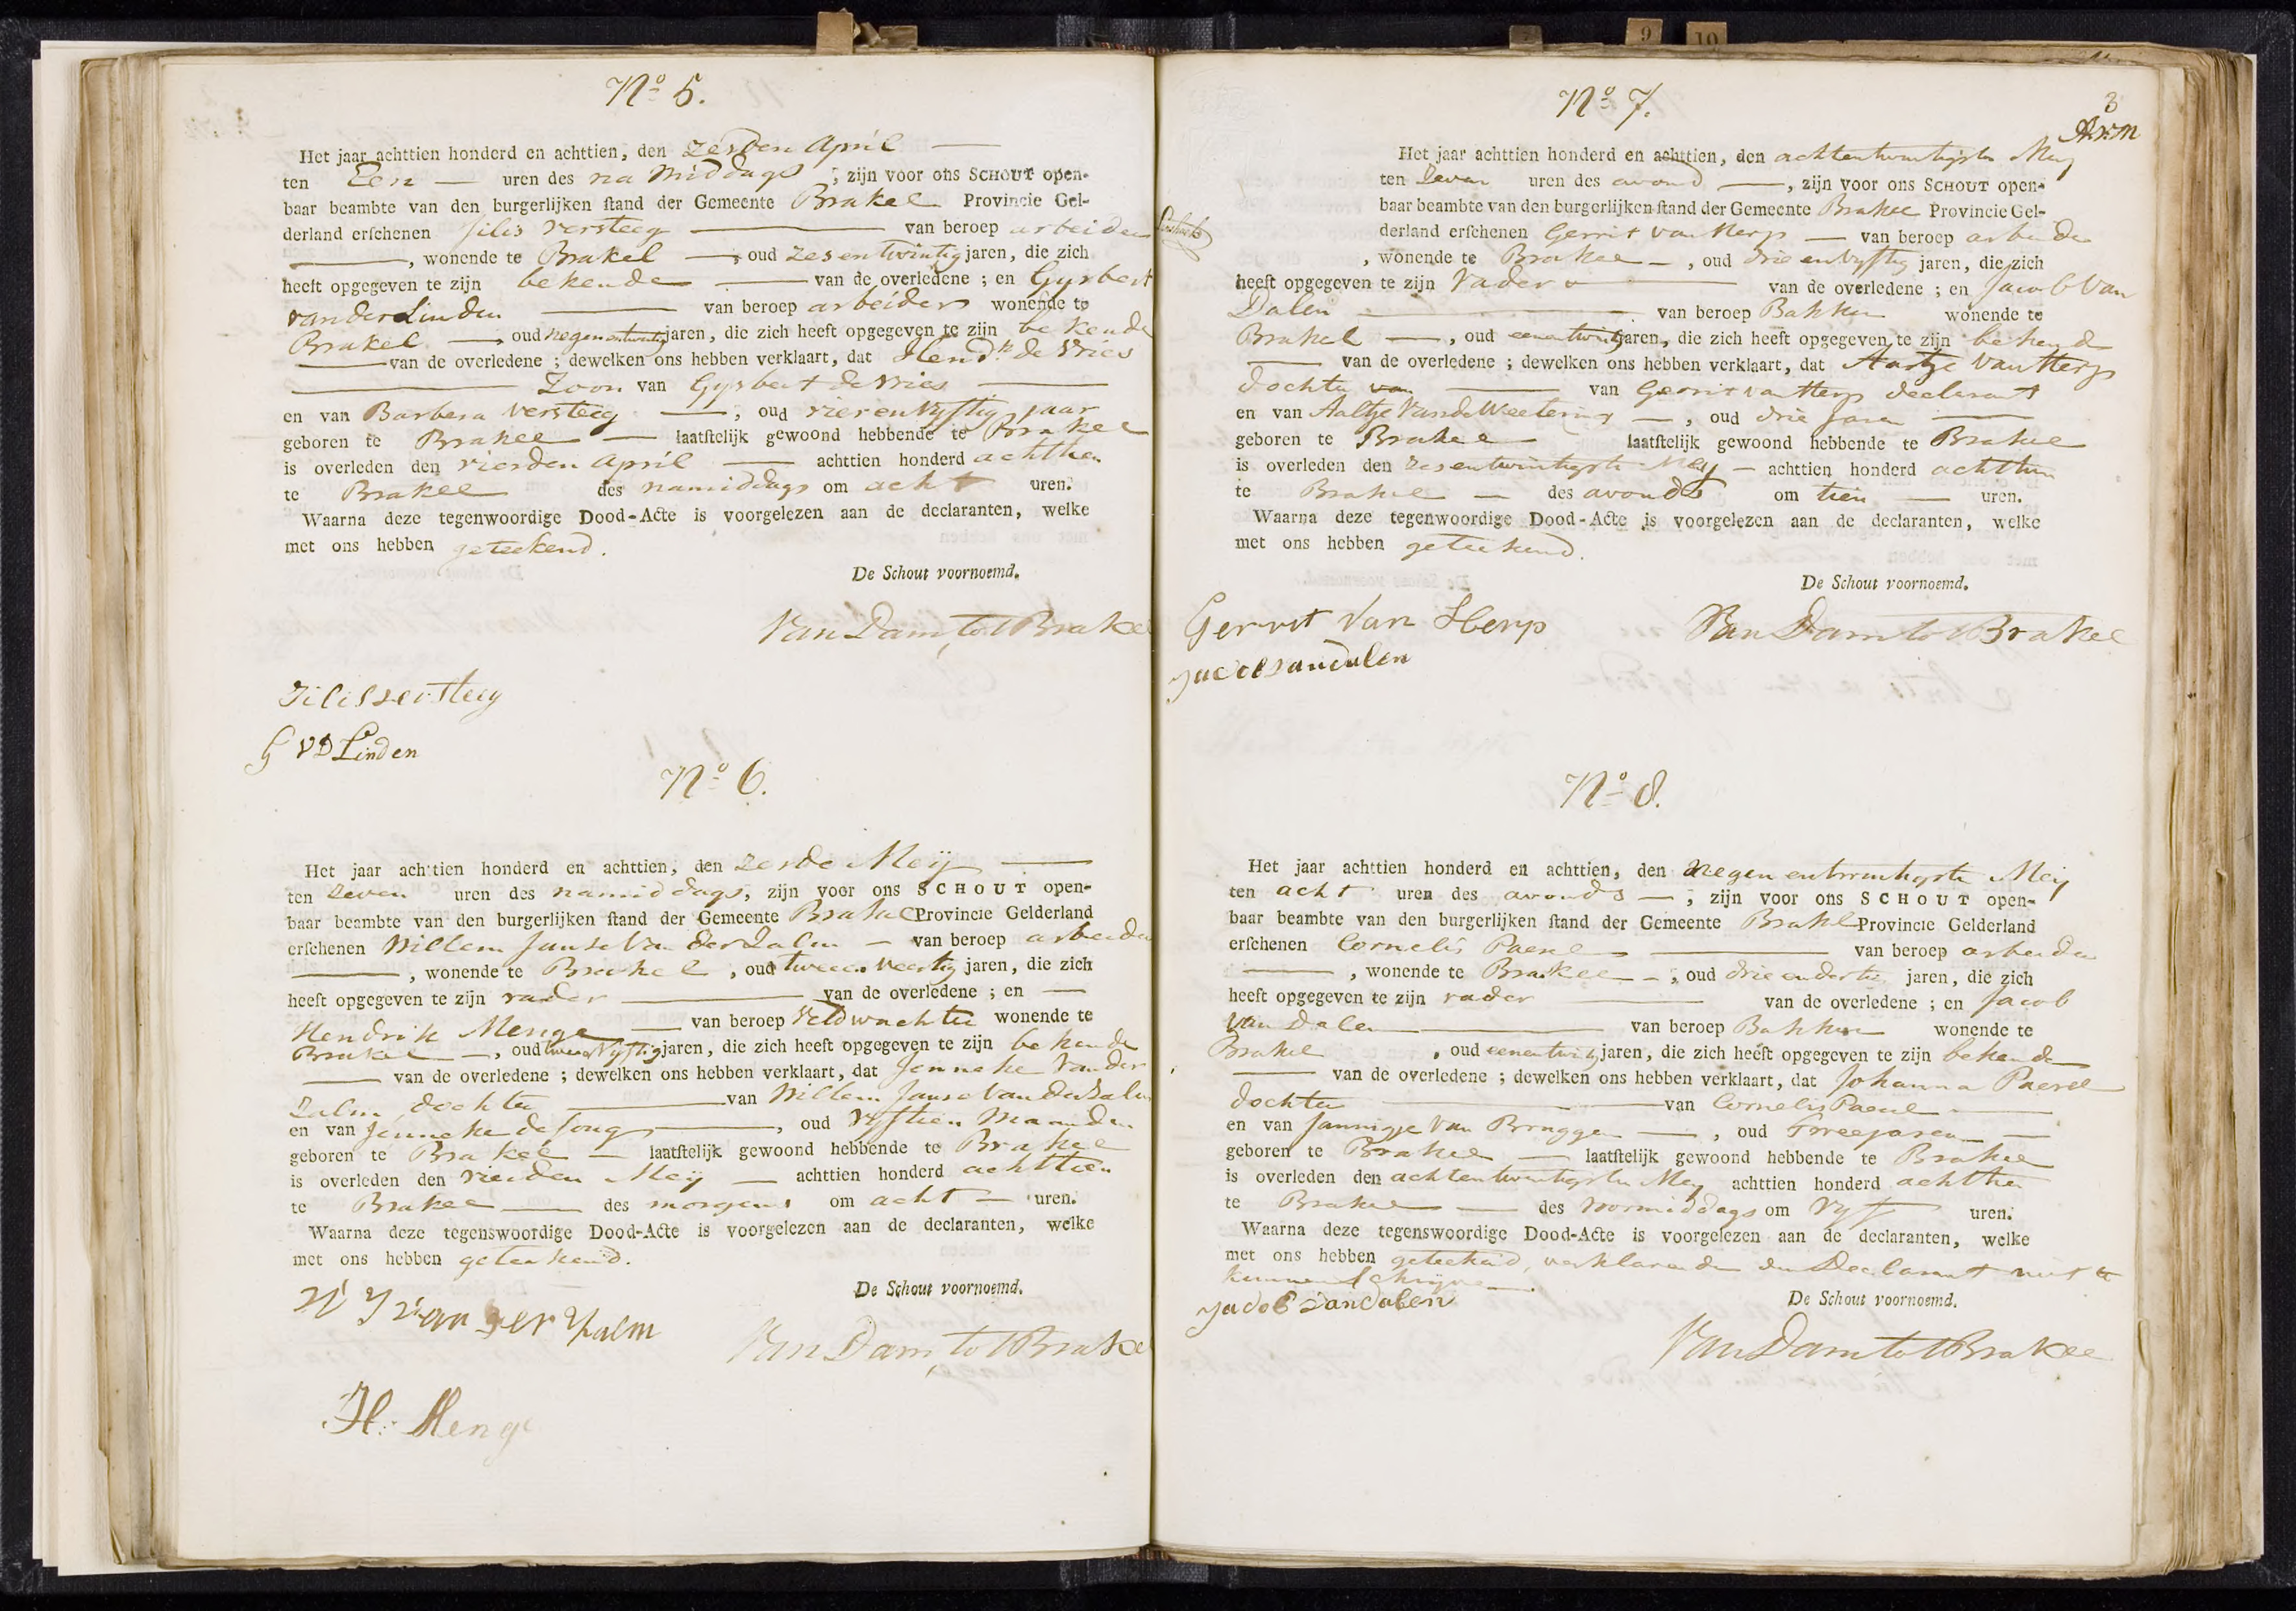 No 5.
Het jaar achttien honderd en achttien, den zesden April
ten Een uren des na middags, zijn voor ons SCHOUT open-
baar beambte van den burgerlijken stand der Gemeente Brakel Provincie Gel-
derland erschenen Jilis Versteeg van beroep arbeider
, wonende te Brakel, oud zes en twintig jaren, die zich
heeft opgegeven te zijn bekende van de overledene ; en Gysbert
van der Linden van beroep arbeider wonende te
Brakel, oud negenentwintig jaren, die zich heeft opgegeven te zijn bekende
van de overledene ; dewelken ons hebben verklaart, dat Hendk de Vries
Zoon van Gysbert de Vries
en van Barbera Versteeg, oud vier en vyftig jaar
geboren te Brakel laatstelijk gewoond hebbende te Brakel
is overleden den vierden April achttien honderd achttien
te Brakel des namiddags om acht uren.
Waarna deze tegenwoordige Dood-Acte is voorgelezen aan de declaranten, welke
met ons hebben geteekend.
De Schout voornoemd.
Van Dam tot Brakel
Jilis versteeg
G V D Linden
No 6.
Het jaar achttien honderd en achttien, den zesde Meij
ten zeven uren des namiddags, zijn voor ons SCHOUT open-
baar beambte van den burgerlijken stand der Gemeente Brakel Provincie Gelderland
erschenen Willem Janse Van der Zalm van beroep arbeider
, wonende te Brakel, oud twee en veertig jaren, die zich
heeft opgegeven te zijn vader van de overledene ; en
Hendrik Menge van beroep Veldwachter wonende te
Brakel, oud twee en vyftig jaren, die zich heeft opgegeven te zijn bekende
van de overledene ; dewelken ons hebben verklaart, dat Jenneke Van der
Zalm, dochter van Willem Janse Van der Zalm
en van Jenneke de Jong, oud vyftien maanden
geboren te Brakel laatstelijk gewoond hebbende te Brakel
is overleden den vierden Meij achttien honderd achttien
te Brakel des morgens om acht uren.
Waarna deze tegenswoordige Dood-Acte is voorgelezen aan de declaranten, welke
met ons hebben geteekend.
De Schout voornoemd.
W J van der Zalm
Van Dam tot Brakel
H: Menge
3
Arm
No 7.
Het jaar achttien honderd en achttien, den achtentwintigsten Mey
ten zeven uren des avond, zijn voor ons SCHOUT open-
baar beambte van den burgerlijken stand der Gemeente Brakel Provincie Gel-
derland erschenen Gerrit van Herp van beroep arbeider
, wonende te Brakel, oud drie en vyftig jaren, die zich
heeft opgegeven te zijn Vader van de overledene ; en Jacob Van
Dalen van beroep Bakker wonende te
Brakel, oud eenentwintig jaren, die zich heeft opgegeven te zijn bekende
van de overledene ; dewelken ons hebben verklaart, dat Aartje Van Herp
dochter van van Gerrit van Herp declarant
en van Aaltje Van de Weetering, oud drie Jaren
geboren te Brakel laatstelijk gewoond hebbende te Brakel
is overleden den zesentwintigste Mey achttien honderd achttien
te Brakel des avonds om tien uren.
Waarna deze tegenwoordige Dood-Acte is voorgelezen aan de declaranten, welke
met ons hebben geteekend.
De Schout voornoemd.
Gerrit Van Herp
Van Dam tot Brakel
Jacob van dalen
No 8.
Het jaar achttien honderd en achttien, den Negen entwintigste Meij
ten acht uren des avonds, zijn voor ons SCHOUT open-
baar beambte van den burgerlijken stand der Gemeente Brakel Provincie Gelderland
erschenen Cornelis van beroep arbeider
, wonende te Brakel, oud drie en dertig jaren, die zich
heeft opgegeven te zijn vader van de overledene ; en Jacob
Van Dalen van beroep Bakker wonende te
Brakel, oud eenentwintig jaren, die zich heeft opgegeven te zijn bekende
van de overledene ; dewelken ons hebben verklaart, dat Johanna
dochter van Cornelis
en van Jannigje Van Bruggen, oud Twee jaren
geboren te Brakel laatstelijk gewoond hebbende te Brakel
is overleden den achtentwintigsten Mey achttien honderd achttien
te Brakel des voormiddags om Vyf uren.
Waarna deze tegenswoordige Dood-Acte is voorgelezen aan de declaranten, welke
met ons hebben geteekend, verklarende den Declarant niet te
kunnen schryven
De Schout voornoemd.
Jacob van dalen
Van Dam tot Brakel